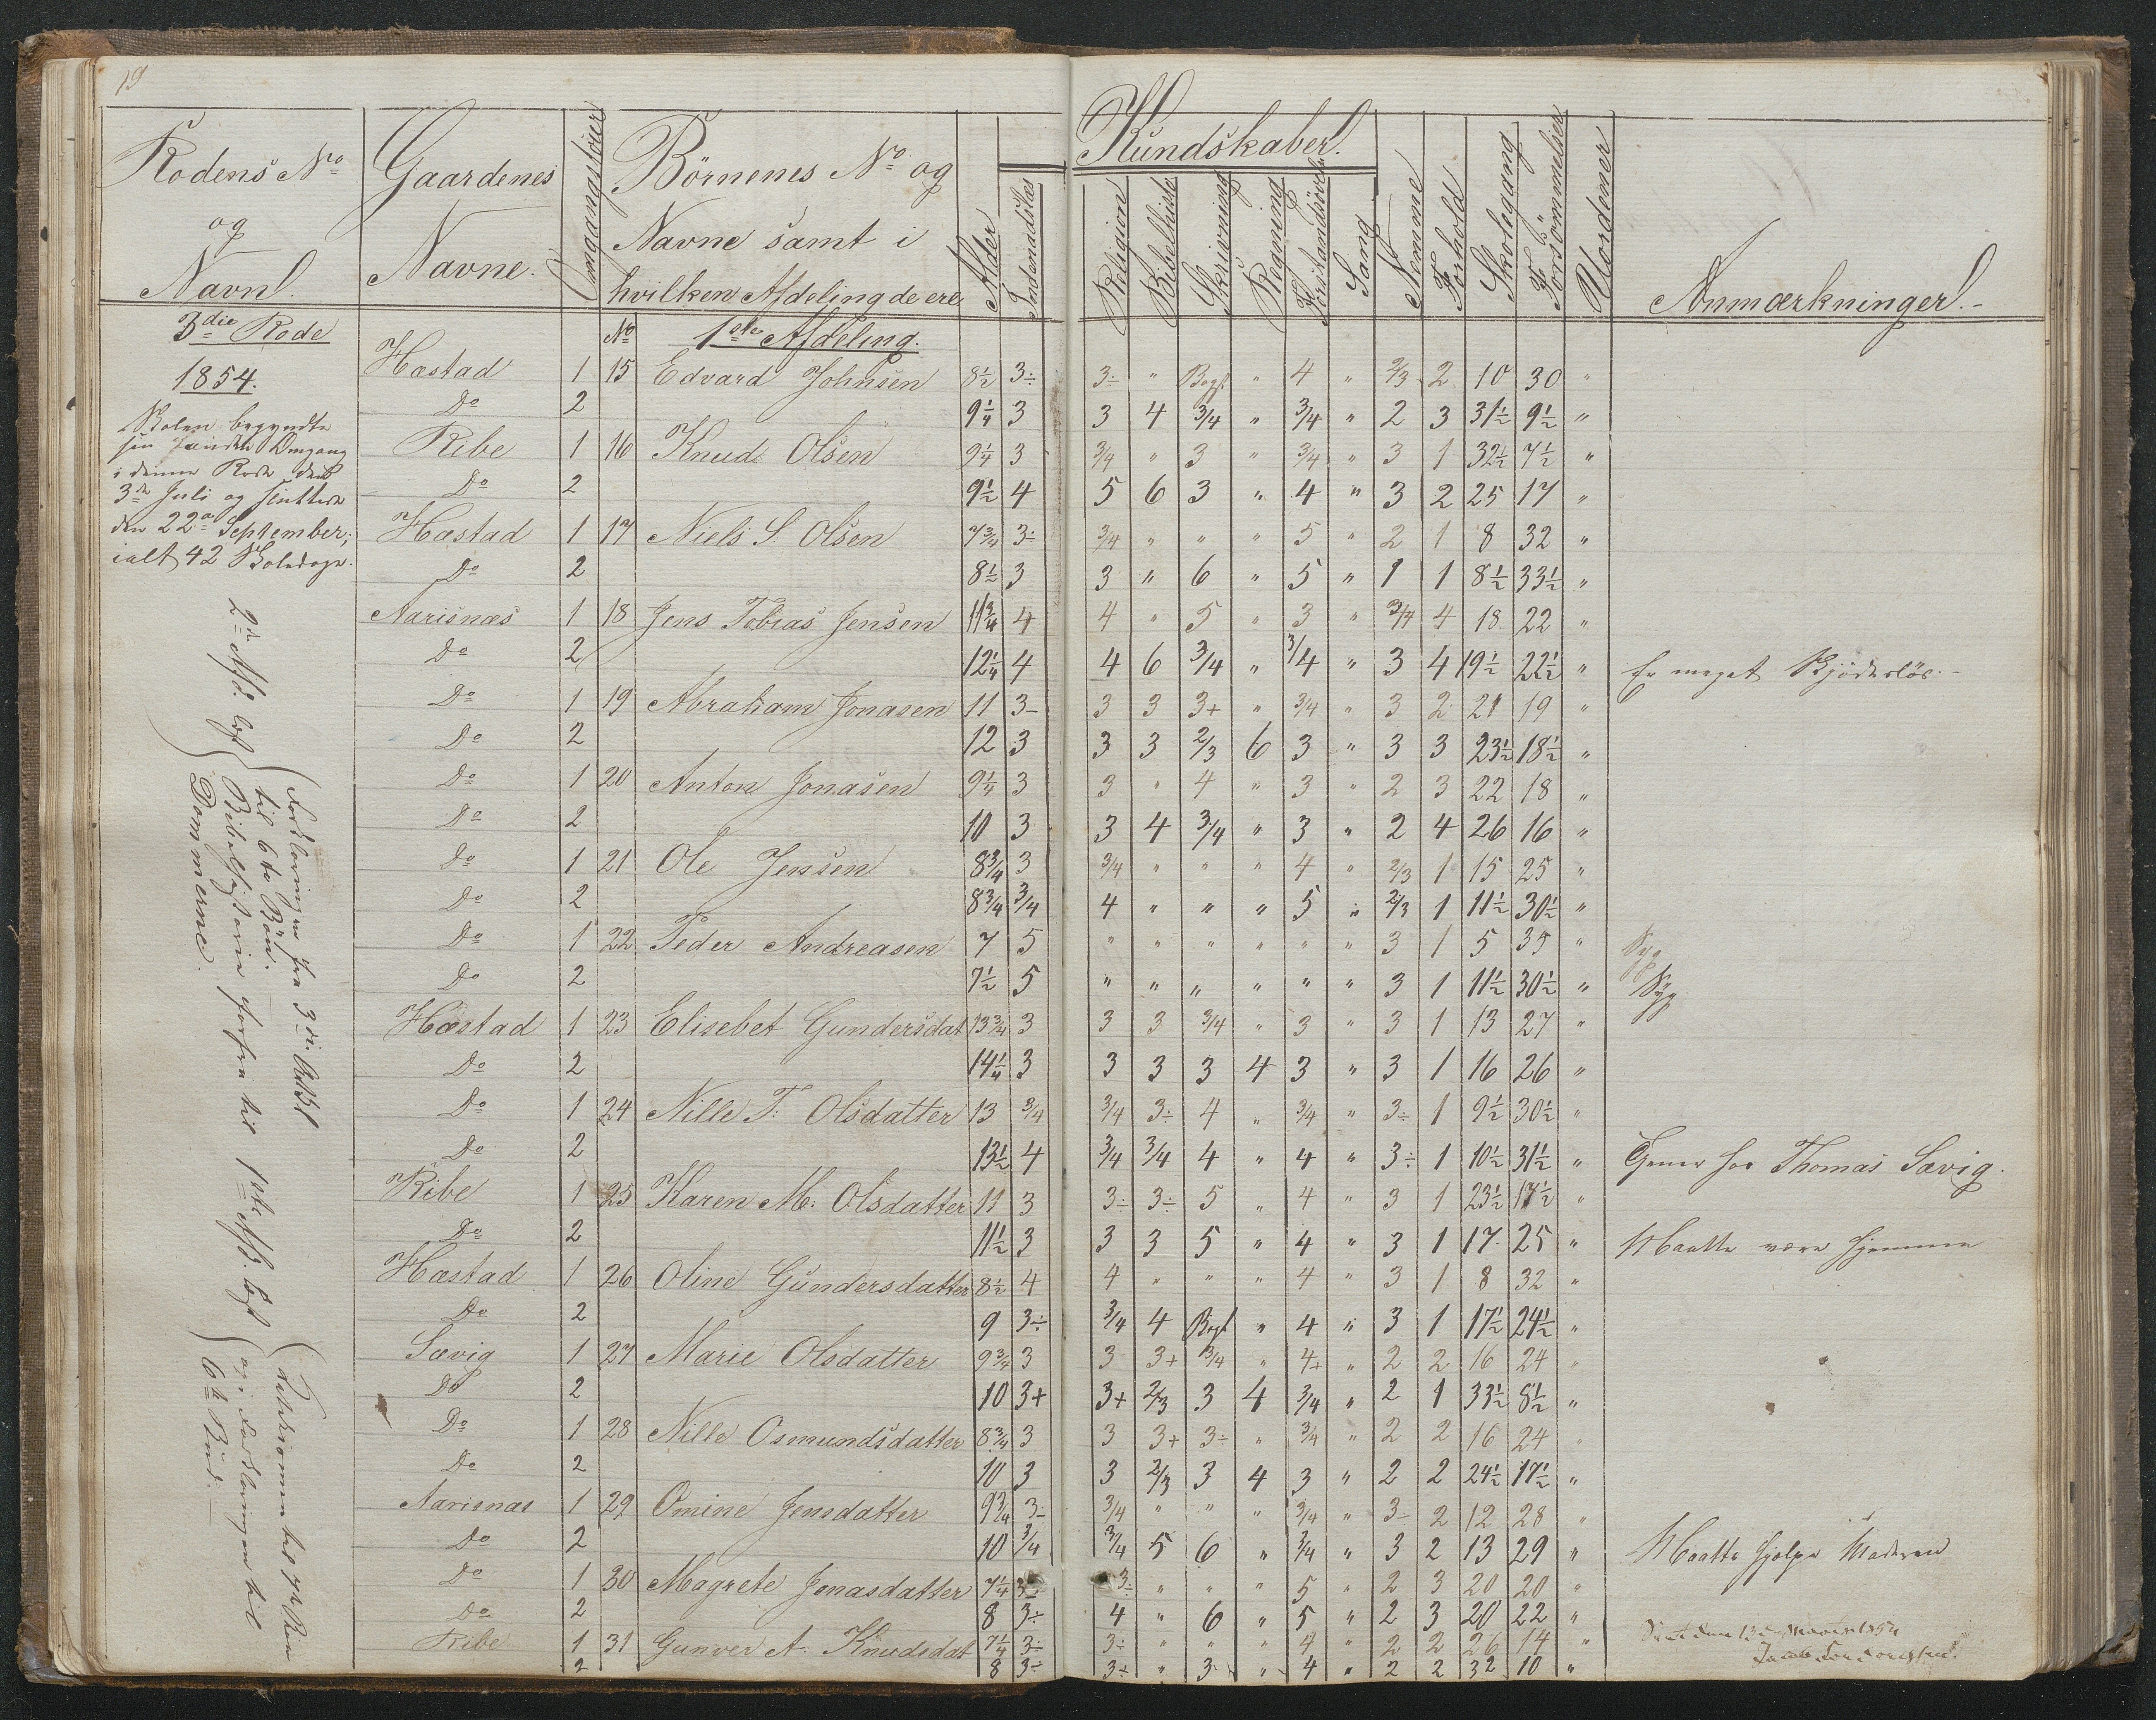 19
Rodens No
og
Navn.
Gaardenes
Navne.
Omgangstöier
Börnenes No og
Navne samt i
hvilken Afdeling de ere
Alder
Indenadslæs
Kundskaber.
Religion
Bibelhisto
Skrivning
Regning
Forstandsövels
Sang
Nemme
Forhold
Skolegang
Forsömmelser
Uordener
Anmærkninger.
3die Rode
No 1ste Afdeling.
1854.
Skolen begyndte
sin Omgang
i denne Rode den
3de Juli og sluttede
den 22de September;
ialt 42 Skoledage.
Hæstad 1 15 Edvard Johnsen 8½ 3÷ 3÷ " Bogst " 4 " 2/3 2 10 30 "
Do 2 9¼ 3 3 4 3/4 " 3/4 " 2 3 31½ 9½ "
Ribe 1 16 Knud Olsen 9¼ 3 3/4 " 3 " 3/4 " 3 1 32½ 7½ "
Do 2 9½ 4 5 6 3 " 4 " 3 2 25 17 "
Hæstad 1 17 Niels S. Olsen 7¾ 3÷ 3/4 " " " 5 " 2 1 8 32 "
Do 2 8½ 3 3 " 6 " 5 " 1 1 8½ 33½ "
Aarisnæs 1 18 Jens Tobias Jensen 11¾ 4 4 " 5 " 3 " 3/4 4 18 22 "
Do 2 12¼ 4 4 6 3/4 " 3/4 " 3 4 19½ 22½ " Er meget Skjödeslös.
Do 1 19 Abraham Jonasen 11 3- 3 3 3+ " 3/4 " 3 2 21 19 "
Do 2 12 3 3 3 2/3 6 3 " 3 3 23½ 18½ "
Do 1 20 Anton Jonasen 9¼ 3 3 " 4 " 3 " 2 3 22 18 "
Do 2 10 3 3 4 3/4 " 3 " 2 4 26 16 "
Do 1 21 Ole Jensen 8¾ 3 3/4 " " " 4 " 2/3 1 15 25 "
Do 2 8¾ 3/4 4 " " " 5 " 2/3 1 11½ 30½ "
Do 1 22 Peder Andreasen 7 5 " " " " " " 3 1 5 35 " Syg
Do 2 7½ 5 " " " " " " 3 1 11½ 30½ " Syg
Hæstad 1 23 Elisebet Gundersdat 13¾ 3 3 3 3/4 " 3 " 3 1 13 27 "
Do 2 14¼ 3 3 3 3 4 3 " 3 1 16 26 "
Do 1 24 Nille T. Olsdatter 13 3/4 3/4 3÷ 4 " 3/4 " 3÷ 1 9½ 30½ "
Do 2 13½ 4 3/4 3/4 4 " 4 " 3÷ 1 10½ 31½ " Tjener hos Thomas Sævig.
Ribe 1 25 Karen M. Olsdatter 11 3 3÷ 3÷ 5 " 4 " 3 1 23½ 17½ "
Do 2 11½ 3 3 3 5 " 4 " 3 1 17 25 " Maatte være hjemme
Hæstad 1 26 Oline Gundersdatter 8½ 4 4 " " " 4 " 3 1 8 32 "
Do 2 9 3÷ 3/4 4 Bogst " 4 " 3 1 17½ 24½ "
Sævig 1 27 Marie Olsdatter 9¾ 3 3 3+ 3/4 " 4+ " 2 2 16 24 "
Do 2 10 3+ 3+ 2/3 3 4 3/4 " 2 1 33½ 8½ "
Do 1 28 Nille Osmundsdatter 8¾ 3 3 3+ 3÷ " 3/4 " 2 2 16 24 "
Do 2 10 3 3 2/3 3 4 3 " 2 2 24½ 17½ "
Aarisnæs 1 29 Omine Jensdatter 9¾ 3- 3/4 " " " 3/4 " 3- 2 12 28 "
Do 2 10 3/4 3/4 5 6 " 3/4 " 3 2 13 29 " Maatte hjælpe Moderen
Do 1 30 Magrete Jonasdatter 7¼ 3÷ 3÷ " " " 5 " 2 3 20 20 "
Do 2 8 3÷ 4 " 6 " 5 " 2 3 20 22 "
Ribe 1 31 Gunver A. Knudsdat 7¼ 3÷ 3÷ " " " 4 " 2 2 26 14 "
2 8 3÷ 3÷ " 3- " 4 " 2 2 32 10 "
2den Afd. læst
Forklaringen fra 3die Art.
til 6te Bön.
Bibelhistorie forfra til
Dommerne.
1ste Afd. læst
og i Forklaringen til
6te Bud.